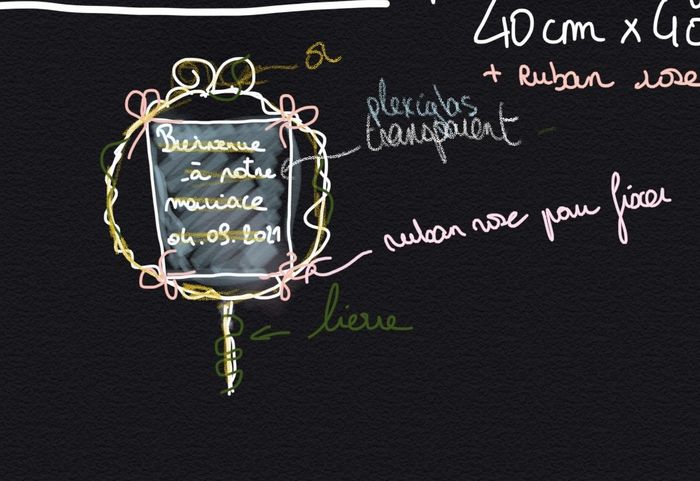 40cm x 40
+ Ruban rose
or
plexiglas
transparent
Bienvenue
à notre
mariage
04.09.2021
ruban rose pour fixer
lierre